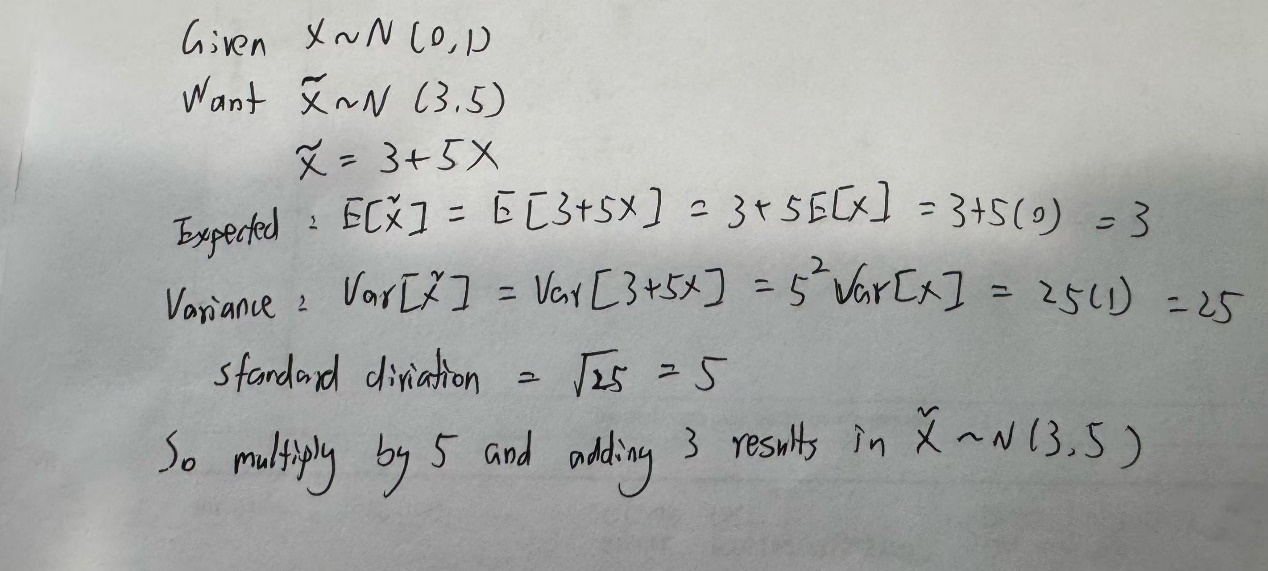 Given X ~ N (0,1)
Want X̃ ~ N (3,5)
X̃ = 3+5X
Expected : E[X̃] = E[3+5X] = 3+5E[X] = 3+5(0) = 3
Variance : Var[X̃] = Var[3+5X] = 5²Var[X] = 25(1) = 25
standard diviation = √25 = 5
So multiply by 5 and adding 3 results in X̃ ~ N (3,5)